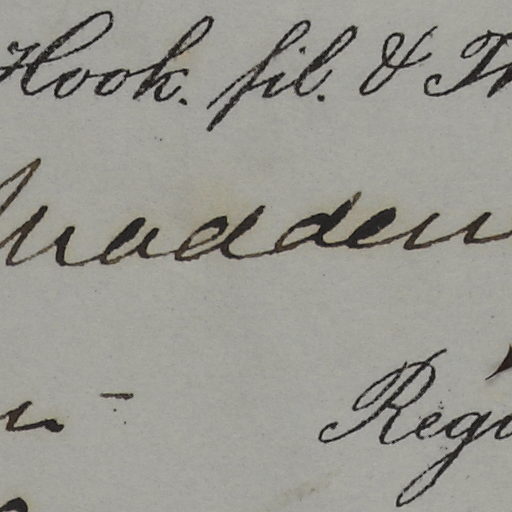 Hook. fil. & Th
Madden
Regi